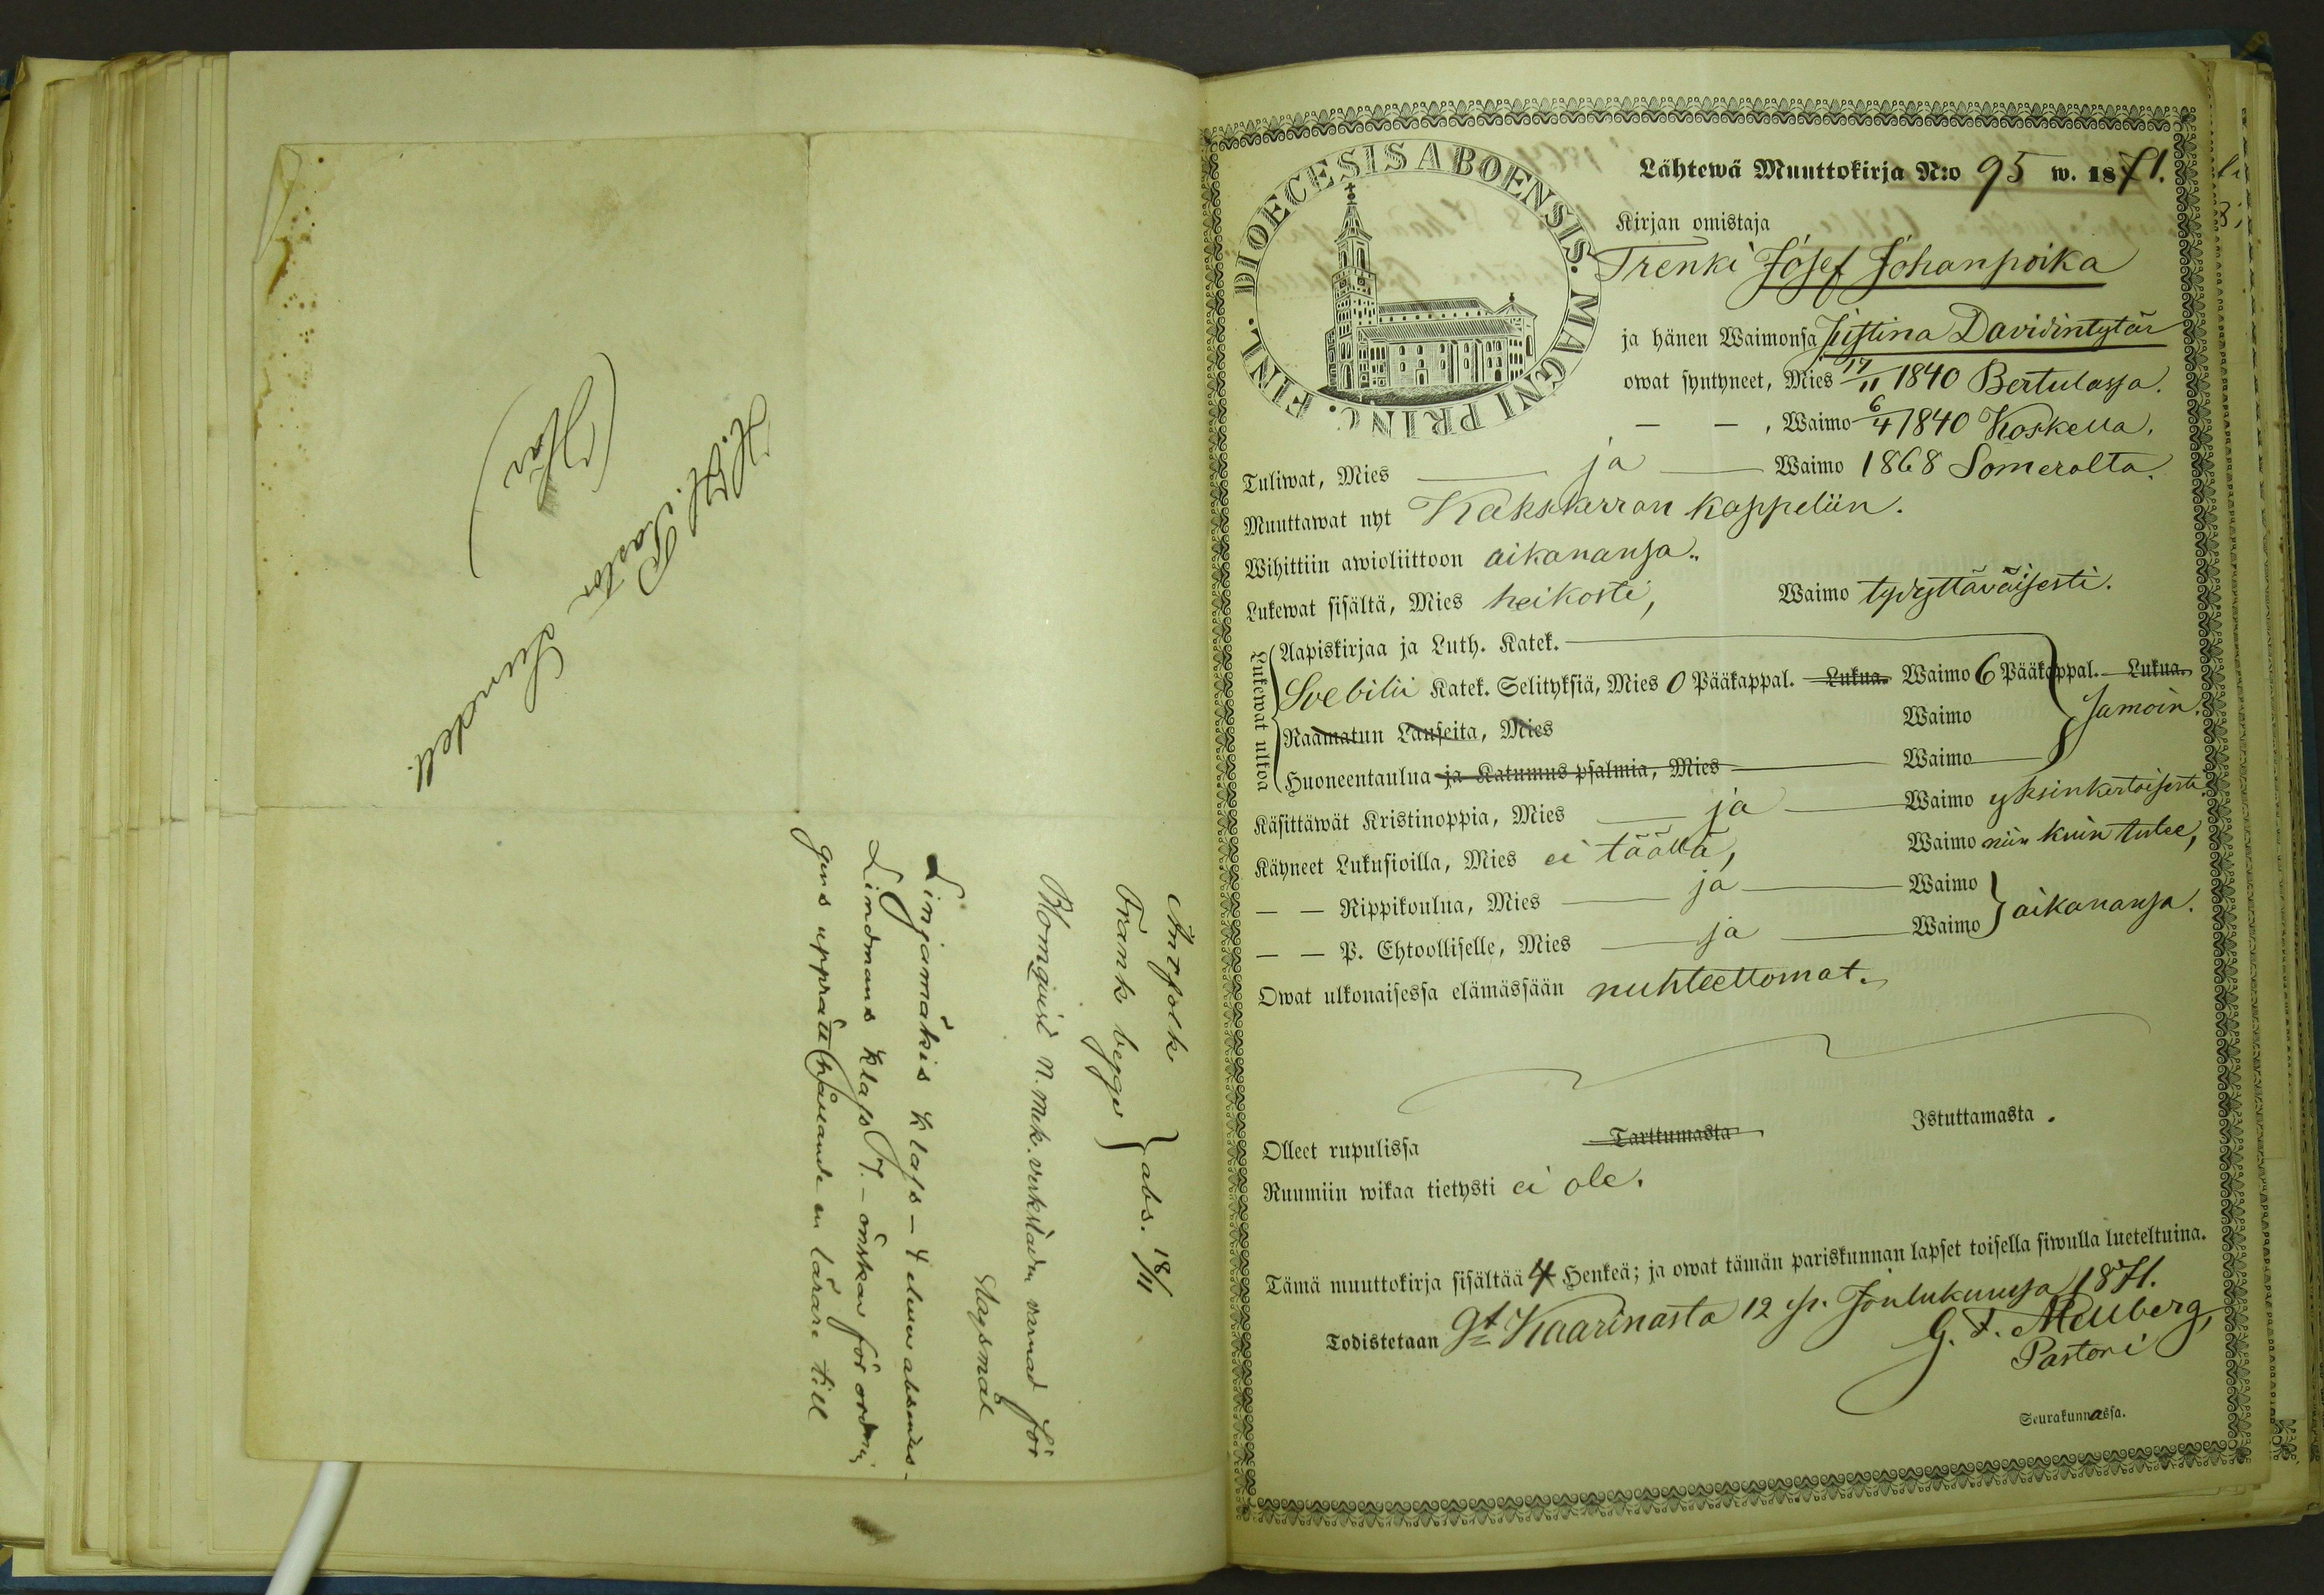 H. H. Pastor Sundell.
(Här)
Inrfolk
Frank begge } abs. 18/11
Blomqvist n. mek. verkstaden varnad för
slagsmål
Linjamäkis klass – 4 elever absentes –
Lindmans klass 7. – önskar för ordning
gens upprätthållande en lärare till
DIOECESIS ABOENSIS. MAGNI PRINC. FINL.
Lähtewä Muuttokirja N:o 95 w. 1871.
Kirjan omistaja
Trenki Josef Johanpoika
ja hänen Waimonsa Justina Davidintytär
owat syntyneet, Mies 17/11 1840 Bertulassa.
— — , Waimo 6/4 1840 Koskella.
Tuliwat, Mies — ja — Waimo 1868 Somerolta.
Muuttawat nyt Kakskerran kappeliin.
Wihittiin awioliittoon aikanansa.
Lukewat sisältä, Mies heikosti, Waimo tydyttäväisesti.
Lukewat ulkoa
Aapiskirjaa ja Luth. Katek.
Svebilii Katek. Selityksiä, Mies 0 Pääkappal. Lukua. Waimo 6 Pääkappal. Lukua.
Raamatun Lauseita, Mies Waimo samoin.
Huoneentaulua ja Katumus psalmia, Mies Waimo
Käsittäwät Kristinoppia, Mies — ja — Waimo yksinkertaisesti.
Käyneet Lukusioilla, Mies ei täällä, Waimo niin kuin tulee,
— — Rippikoulua, Mies — ja — Waimo
— — P. Ehtoolliselle, Mies — ja — Waimo } aikanansa.
Owat ulkonaisessa elämässään nuhteettomat.
Olleet rupulissa Tarttumasta Istuttamasta.
Ruumiin wikaa tietysti ei ole.
Tämä muuttokirja sisältää 4 Henkeä; ja owat tämän pariskunnan lapset toisella siwulla lueteltuina.
Todistetaan St Kaarinasta 12 p. Joulukuussa 1871.
G. F. Mellberg,
Pastori
Seurakunnassa.